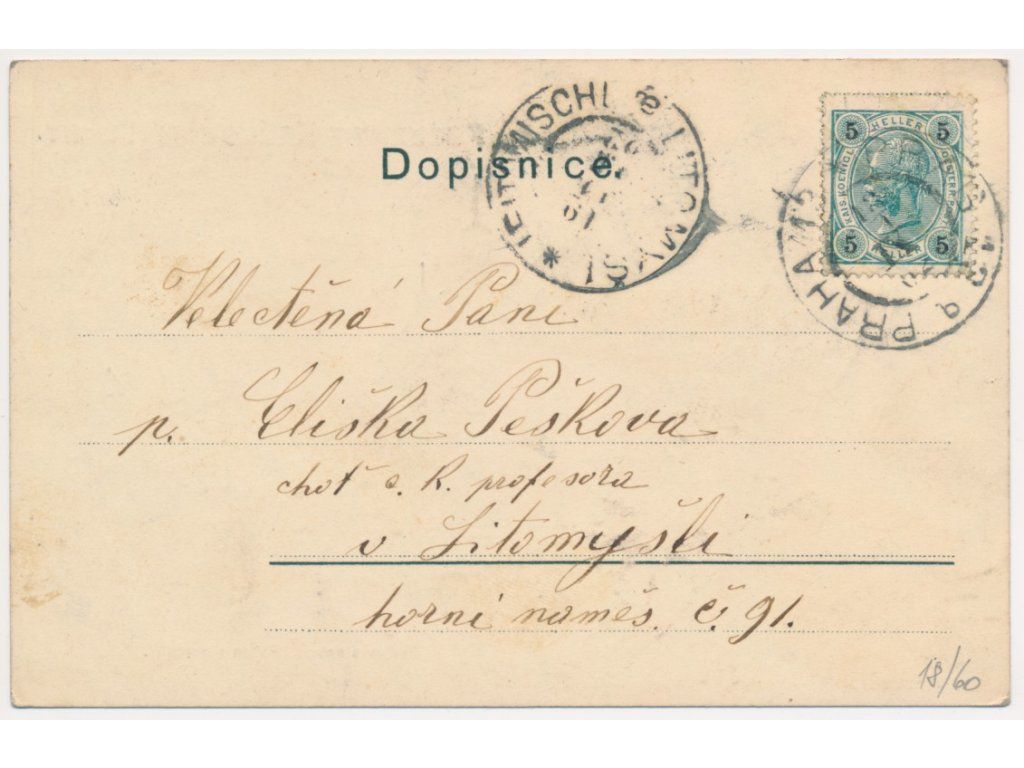 Dopisnice.
LEITOMISCHL LITOMYŠL
5 HELLER 5
KAIS. KOENIGL. OESTERR. POST
5 HELLER 5
PRAHA
Velectěná Paní
p. Eliška Peškova
choť c. k. profesora
v Litomyšli
horní naměs. č. 91.
18/60